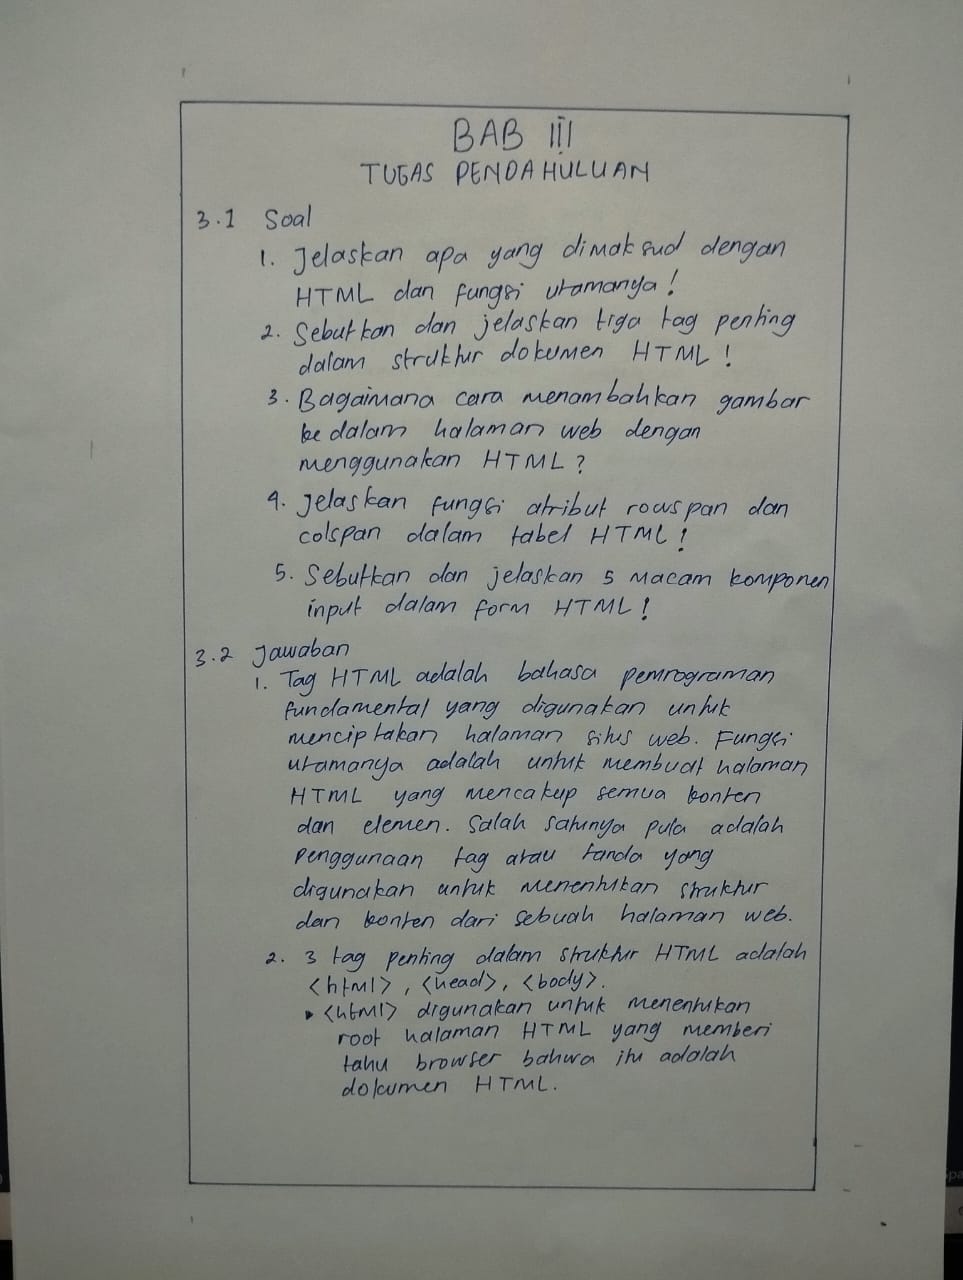 BAB III
TUGAS PENDAHULUAN
3.1 Soal
1. Jelaskan apa yang dimaksud dengan
HTML dan fungsi utamanya!
2. Sebutkan dan jelaskan tiga tag penting
dalam struktur dokumen HTML!
3. Bagaimana cara menambahkan gambar
ke dalam halaman web dengan
menggunakan HTML?
4. Jelaskan fungsi atribut rowspan dan
colspan dalam tabel HTML!
5. Sebutkan dan jelaskan 5 macam komponen
input dalam form HTML!
3.2 Jawaban
1. Tag HTML adalah bahasa pemrograman
fundamental yang digunakan untuk
menciptakan halaman situs web. Fungsi
utamanya adalah untuk membuat halaman
HTML yang mencakup semua konten
dan elemen. Salah satunya pula adalah
penggunaan tag atau tanda yang
digunakan untuk menentukan struktur
dan konten dari sebuah halaman web.
2. 3 tag penting dalam struktur HTML adalah
<html>, <head>, <body>.
▸ <html> digunakan untuk menentukan
root halaman HTML yang memberi
tahu browser bahwa itu adalah
dokumen HTML.